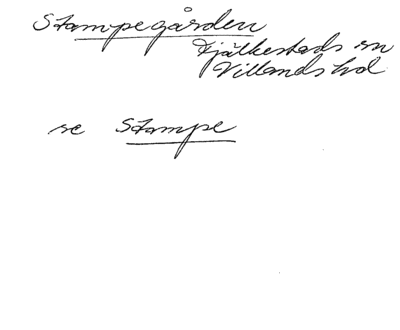 Stampegården
Kjälkestads sn
Villands hd
se Stampe